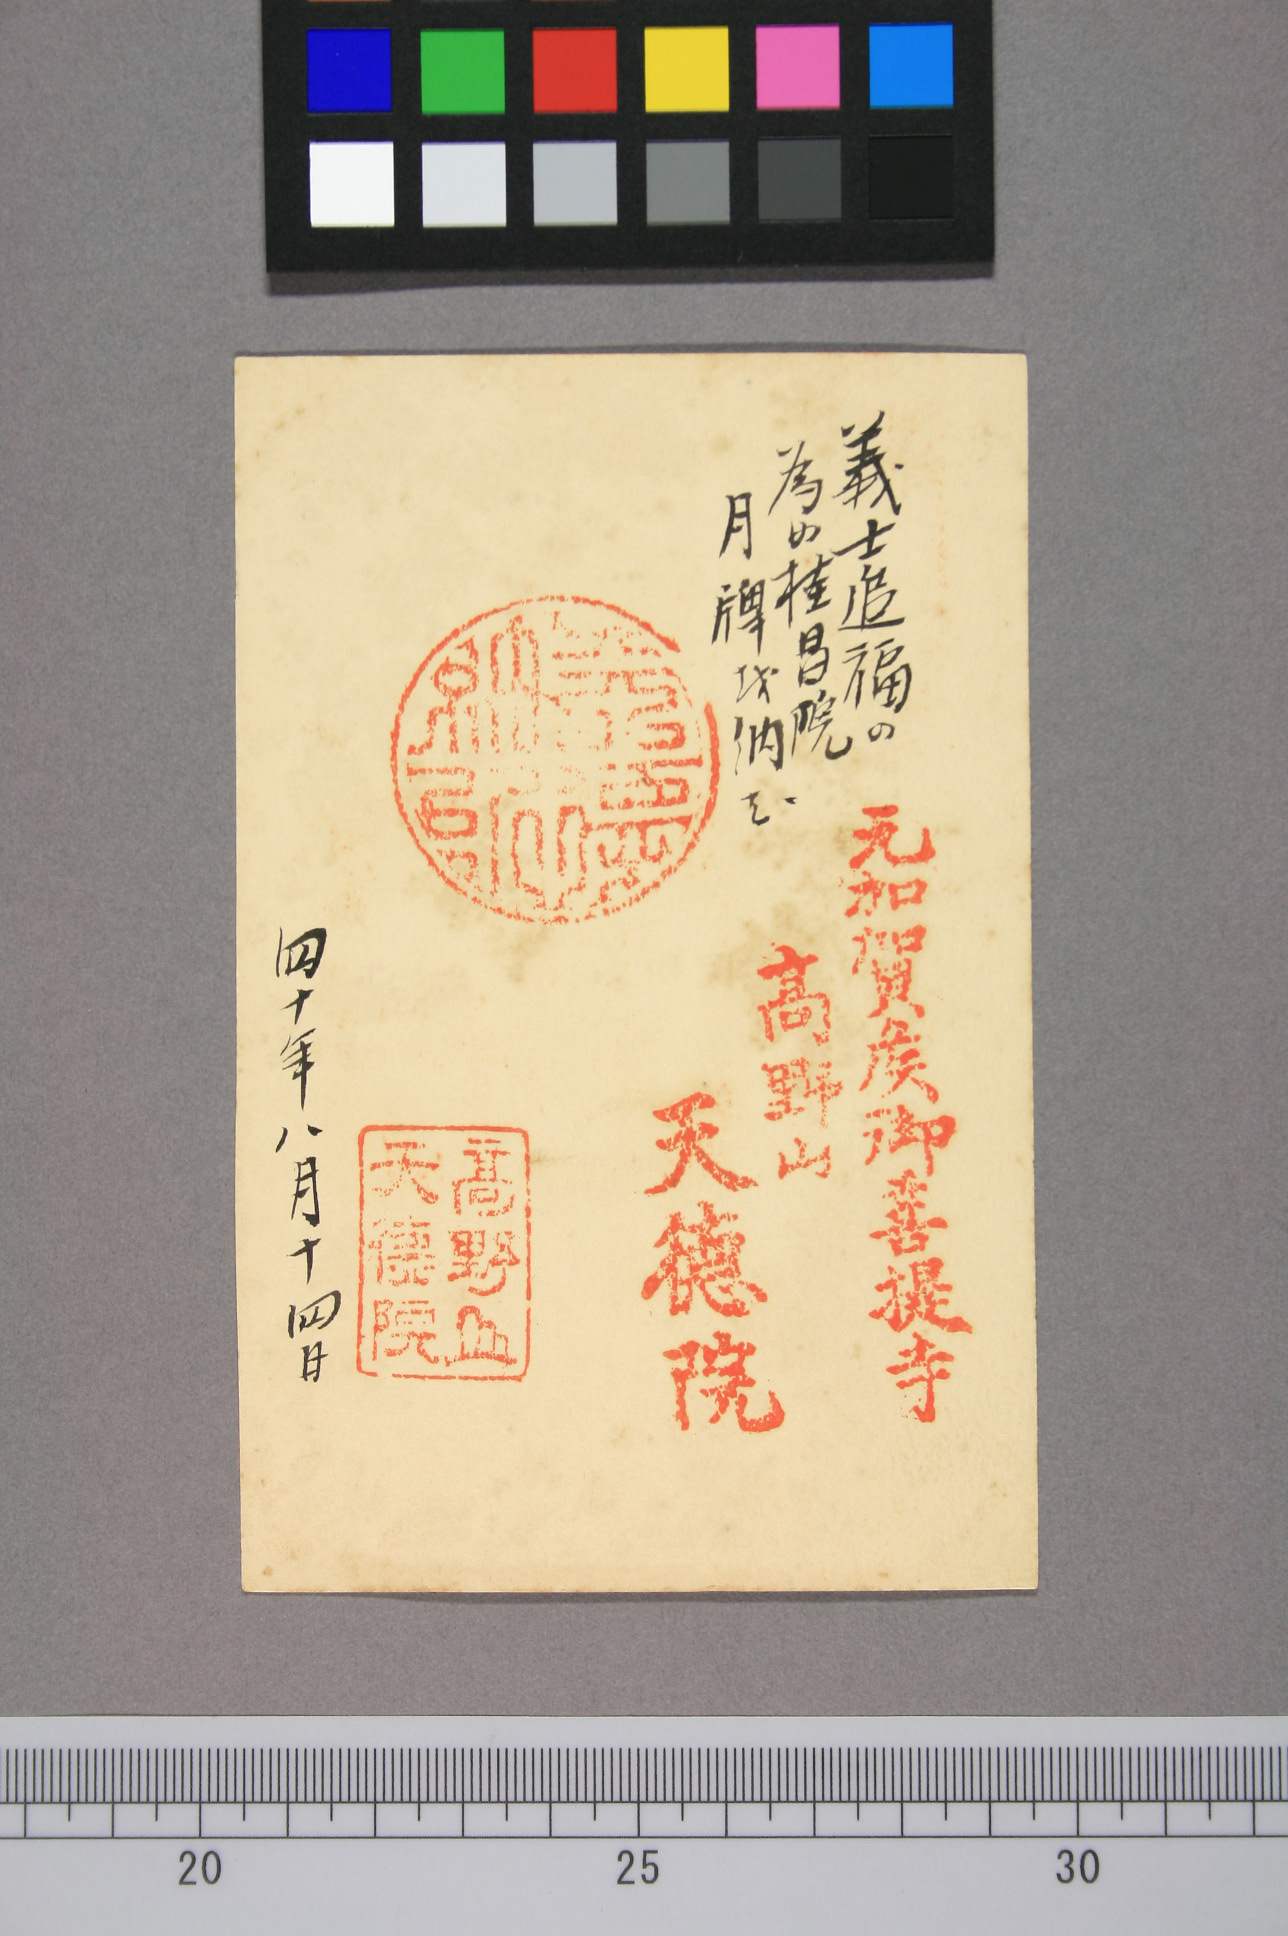 義士追福の
為め桂昌院
月牌を納む
元加賀侯御菩提寺
高野山
天徳院
高野山
天徳院
四十年八月十四日
20 25 30